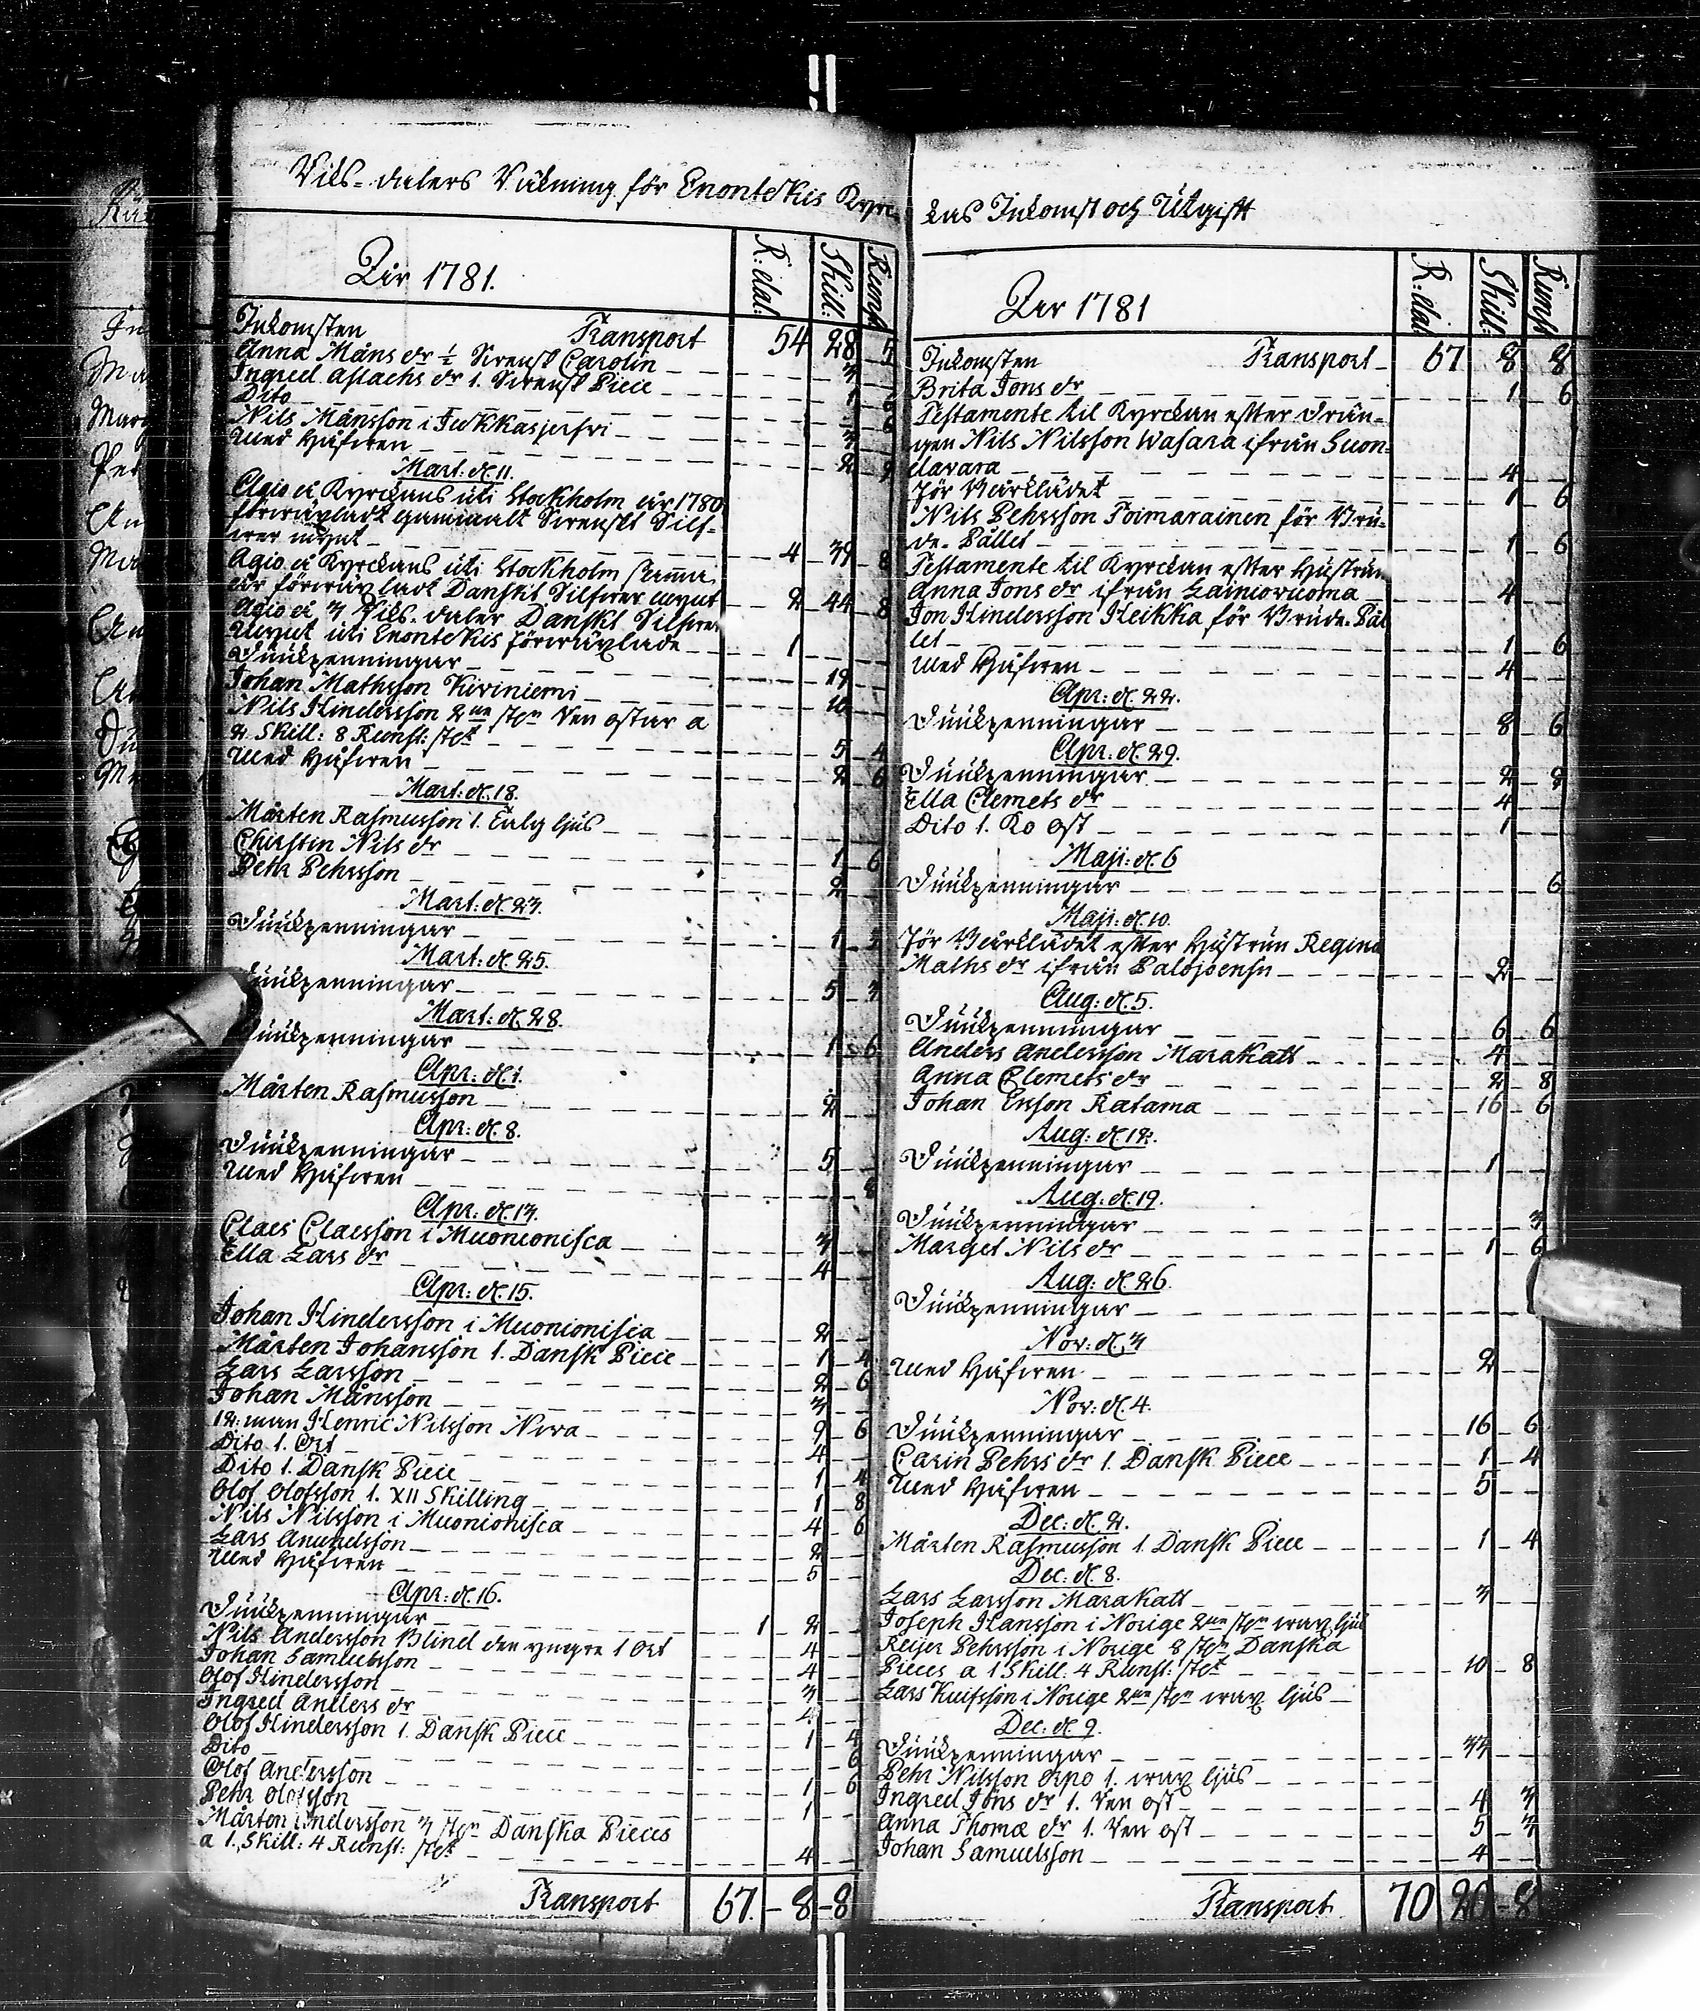 Riks-dalers Räkning för Enontekis Kyrc-
Åir 1781.
R:dal: Skill: Runst
Inkomsten Transport 54 28 5
Anna Måns dr ½ Svensk Carolin 3
Ingred Aslachs dr 1. Svensk Piece 1
Dito 6
Nils Månsson i Jukkasjerfvi 3
Med Håfwen 2
Mart: d. 11.
Agio å Kyrckans uti Stockholm år 1780
förwäxladt gammalt Svenskt Silf-
wer mynt 4 39 8
Agio å Kyrckans uti Stockholm samma
år förwäxladt Danskt Silfwer mynt 2 44 8
Agio å 3 Riks-daler Danskt Silfwer
Mynt uti Enontekis förwäxlade 1
Diükpenningar 19
Johan Mathsson Kiviniemi 10
Nils Hindersson 2ne st:n Ren ostar a
2 Skill: 8 Runst: st:t 5 4
Med Håfwen 2 6
Mart: d. 18.
Mårten Rasmusson 1. Talg ljus
Chirstin Nils dr 1 6
Pehr Pehrsson 2
Mart: d. 23.
Diükpenningar 1 3
Mart: d. 25.
Diükpenningar 5 3
Mart: d. 28.
Diükpenningar 1 6
Apr: d. 1.
Mårten Rasmusson 2
Apr: d. 8.
Diükpenningar 5
Med Håfwen 8
Apr: d. 13.
Claes Claesson i Muonionisca 3
Ella Lars dr 4
Apr: d. 15.
Johan Hindersson i Muonionisca 2
Mårten Johansson 1. Dansk Piece 1 4
Lars Larsson 2 6
Johan Månsson 3
12:man Henric Nilsson Niva 9 6
Dito 1. Ort 4
Dito 1. Dansk Piece 1 4
Olof Olofsson 1. XII Skilling 1 8
Nils Nilsson i Muonionisca 4 6
Lars Anundsson 2
Med Håfwen 5
Apr: d. 16.
Diükpenningar 1 2
Nils Andersson Blind den yngre 1 Ort 4
Johan Samuelsson 4
Olof Hindersson 3
Ingred Anders dr 4
Olof Hindersson 1. Dansk Piece 1 4
Dito 6
Olof Andersson 1 6
Pehr Olofsson 1
Mårten Hindersson 3 st:n Danska Pieces
a 1. Skill: 4 Runst: st:t 4
Transport 67. 8 8
kas Inkomst och Utgift
Åir 1781
R:dal Skill: Runst
Inkomsten Transport 67 8 8
Brita Jons dr 1 6
Testamente til Kyrckan efter drän-
gen Nils Nilsson Wasara ifrån Suon-
davara 4
För Bårklädet 1 6
Nils Pehrsson Poimarainen för Brü-
de-Pället 1 6
Testamente til Kyrckan efter Hustrun
Anna Jons dr ifrån Lainiovuoma 4
Jon Hindersson Heikka för Brüde-Päl
let 1 6
Med Håfwen 4
Apr: d. 22.
Diükpenningar 8 6
Apr: d. 29.
Diükpenningar 2 8
Ella Clemets dr 4
Dito 1. Ko ost 1
Maji: d. 6
Diükpenningar 6
Maji: d. 10.
För Bårklädet efter Hustrun Regina
Maths dr ifrån Palojoensu 2
Aug: d. 5.
Diükpenningar 6 6
Anders Andersson Marakatt 4
Anna Clemets dr 2 8
Johan Ersson Ratama 16 6
Aug: d. 12.
Diükpenningar 1
Aug: d. 19.
Diükpenningar 3
Marget Nils dr 1 6
Aug: d. 26.
Diükpenningar
Nov: d. 3
Med Håfwen 2
Nov: d. 4.
Diükpenningar 16 6
Carin Pehrs dr 1. Dansk Piece 1 4
Med Håfwen 5
Dec: d. 2.
Mårten Rasmusson 1. Dansk Piece 1 4
Dec: d. 8.
Lars Larsson Marakatt 3
Joseph Hansson i Norige 2ne st:n wax ljus
Reijer Pehrsson i Norige 8 st:n Danska
Pieces a 1 Skill: 4 Runst: st:t 10 8
Lars Knifsson i Norige 2ne st:n wax ljus
Dec: d. 9.
Diükpenningar 33
Pehr Nilsson Erpo 1. wax ljus
Ingred Jons dr 1. Ren ost 4 3
Anna Thomæ dr 1. Ren ost 5 3
Johan Samuelsson 4
Transport 70 20 8